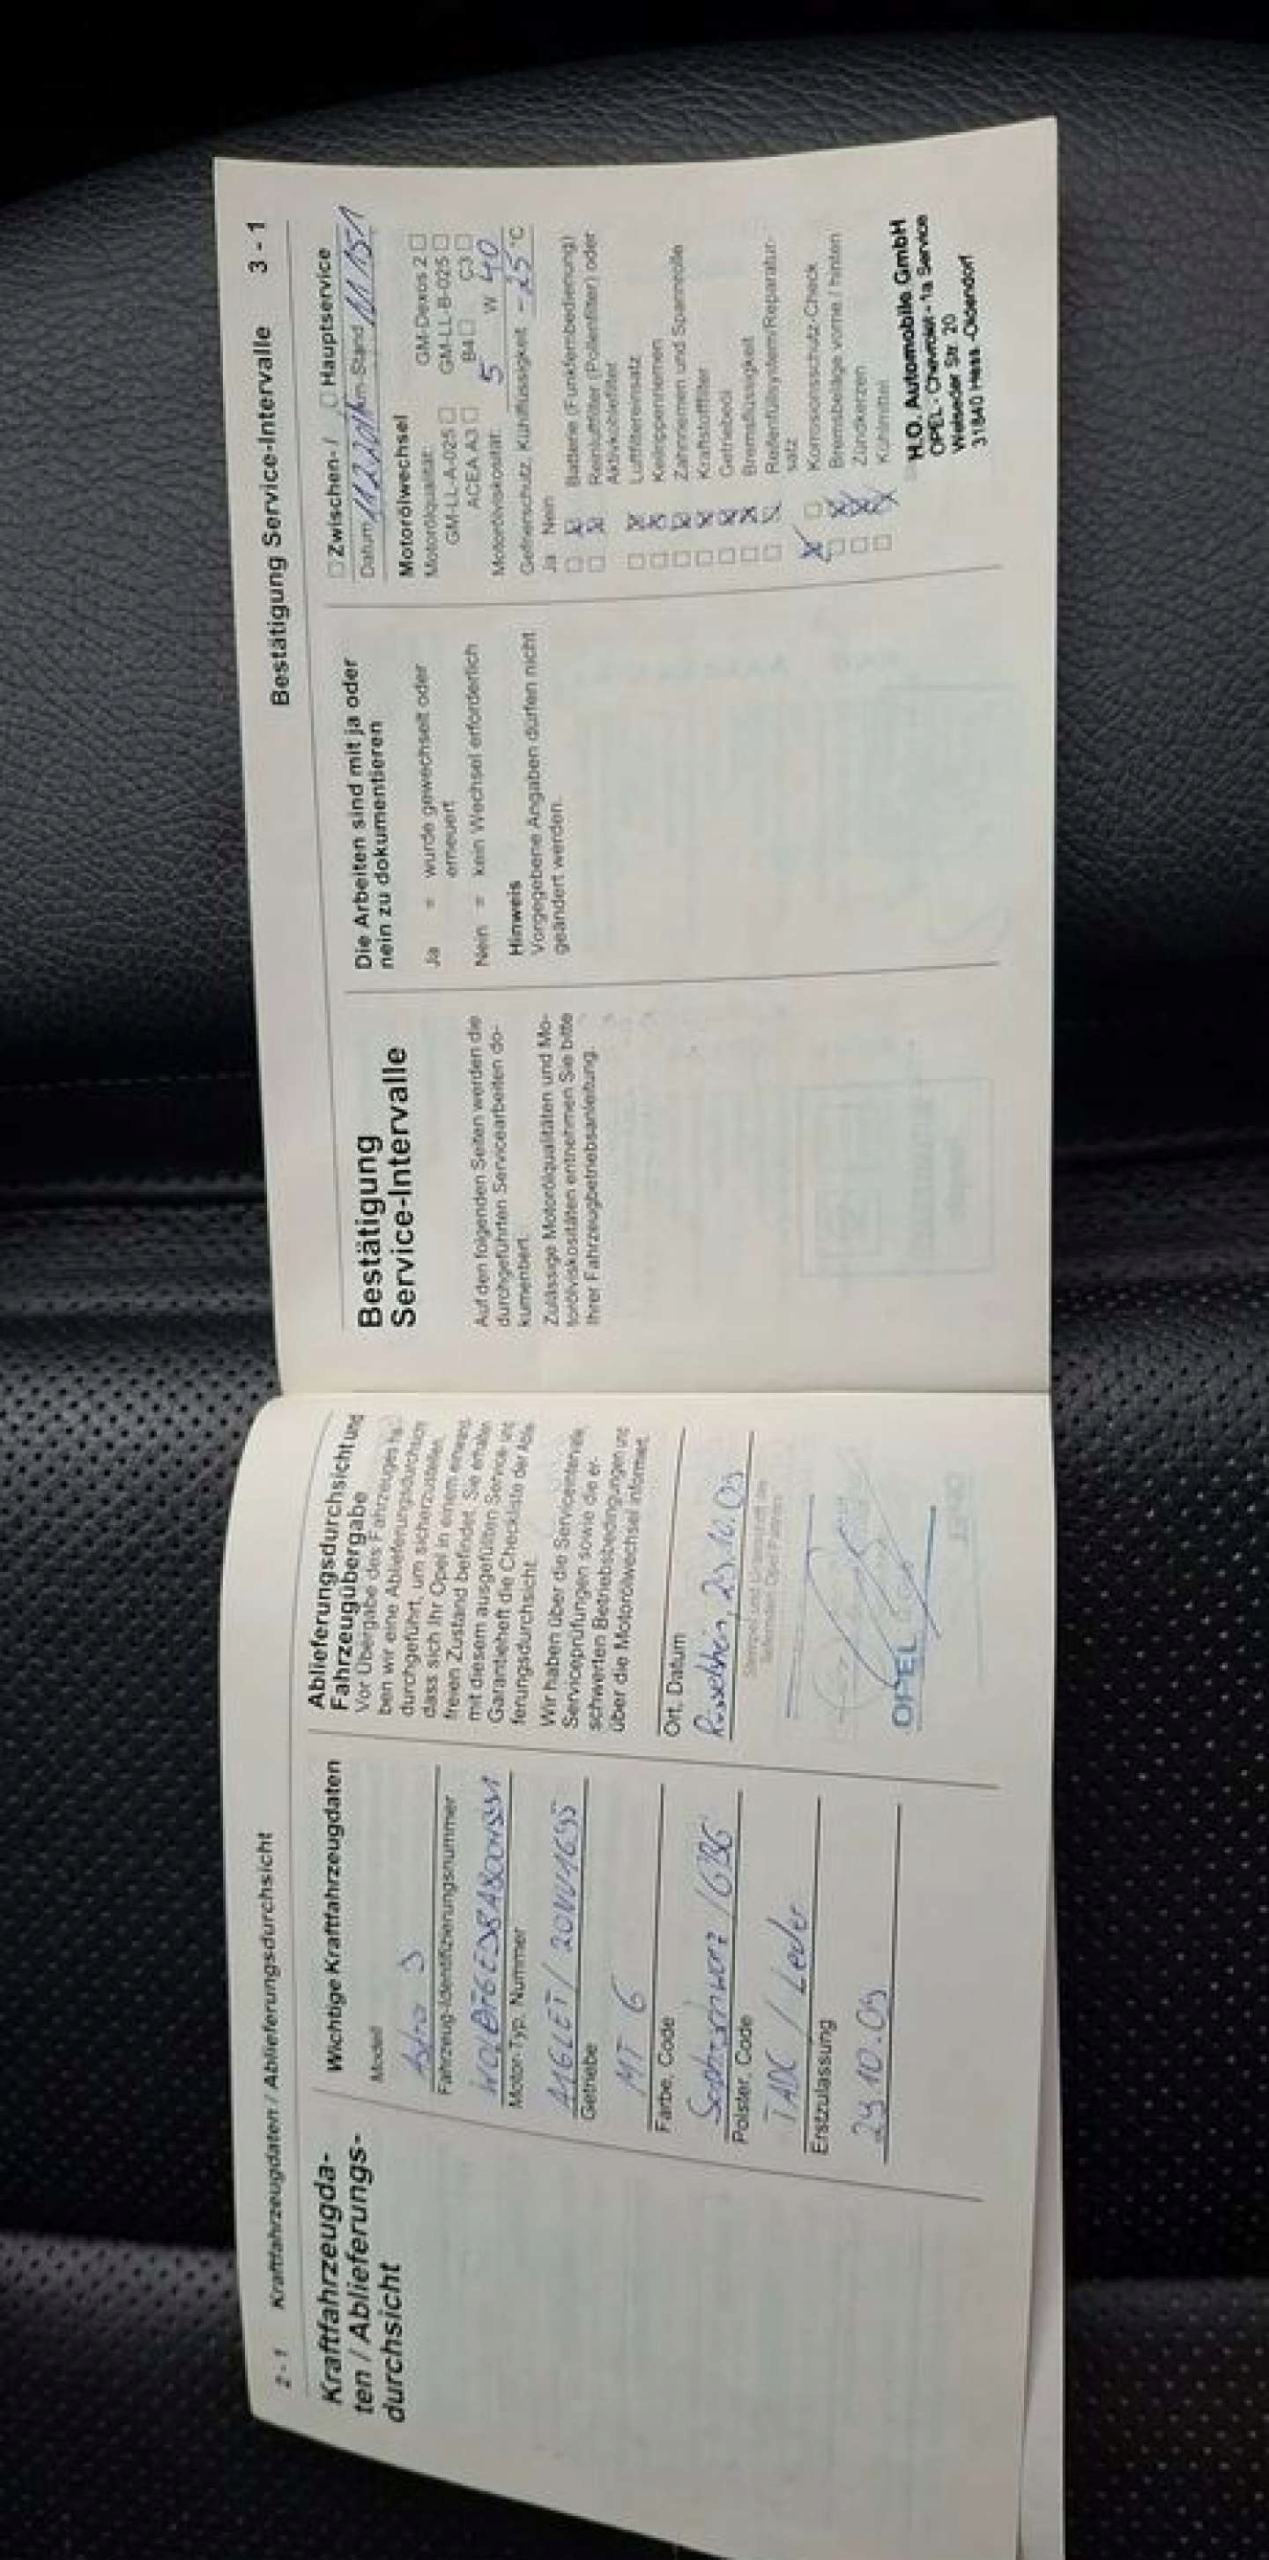 2 - 1 Kraftfahrzeugdaten / Ablieferungsdurchsicht
Kraftfahrzeugda-
ten / Ablieferungs-
durchsicht
Wichtige Kraftfahrzeugdaten
Modell
Astra J
Fahrzeug-Identifizierungsnummer
Motor-Typ, Nummer
A16LET /
Getriebe
MT 6
Farbe, Code
Polster, Code
TADC / Leder
Erstzulassung
29.10.09
Ablieferungsdurchsicht und
Fahrzeugübergabe
Vor Übergabe des Fahrzeuges ha-
ben wir eine Ablieferungsdurchsicht
durchgeführt, um sicherzustellen,
dass sich Ihr Opel in einem
freien Zustand befindet. Sie erhalten
mit diesem ausgefüllten Service- und
Garantieheft die Checkliste der Ablie-
ferungsdurchsicht.
Wir haben über die Serviceintervalle,
Serviceprüfungen sowie die er-
schwerten Betriebsbedingungen und
über die Motorölwechsel informiert.
Ort, Datum
Rüsselsheim, 29.10.09
OPEL
Bestätigung Service-Intervalle 3 - 1
Bestätigung
Service-Intervalle
Auf den folgenden Seiten werden die
durchgeführten Servicearbeiten do-
kumentiert.
Zulässige Motorölqualitäten und Mo-
torölviskositäten entnehmen Sie bitte
Ihrer Fahrzeugbetriebsanleitung.
Die Arbeiten sind mit ja oder
nein zu dokumentieren
Ja = wurde gewechselt oder
erneuert
Nein = kein Wechsel erforderlich
Hinweis
Vorgegebene Angaben dürfen nicht
geändert werden.
Zwischen- / Hauptservice
Datum km-Stand 11151
Motorölwechsel
Motorölqualität: GM-Dexos 2
GM-LL-A-025 GM-LL-B-025
ACEA A3 B4 C3
Motorölviskosität: 5 W 40
Gefrierschutz, Kühlflüssigkeit -25 °C
Ja Nein
Batterie (Funkfernbedienung)
Reinluftfilter (Pollenfilter) oder
Aktivkohlefilter
Luftfiltereinsatz
Keilrippenriemen
Zahnriemen und Spannrolle
Kraftstofffilter
Getriebeöl
Bremsflüssigkeit
Reifenfüllsystem/Reparatur-
satz
Korrosionsschutz-Check
Bremsbeläge vorne / hinten
Zündkerzen
Kühlmittel
H.O. Automobile GmbH
OPEL - Chevrolet - 1a Service
Welseder Str. 20
31840 Hess.-Oldendorf